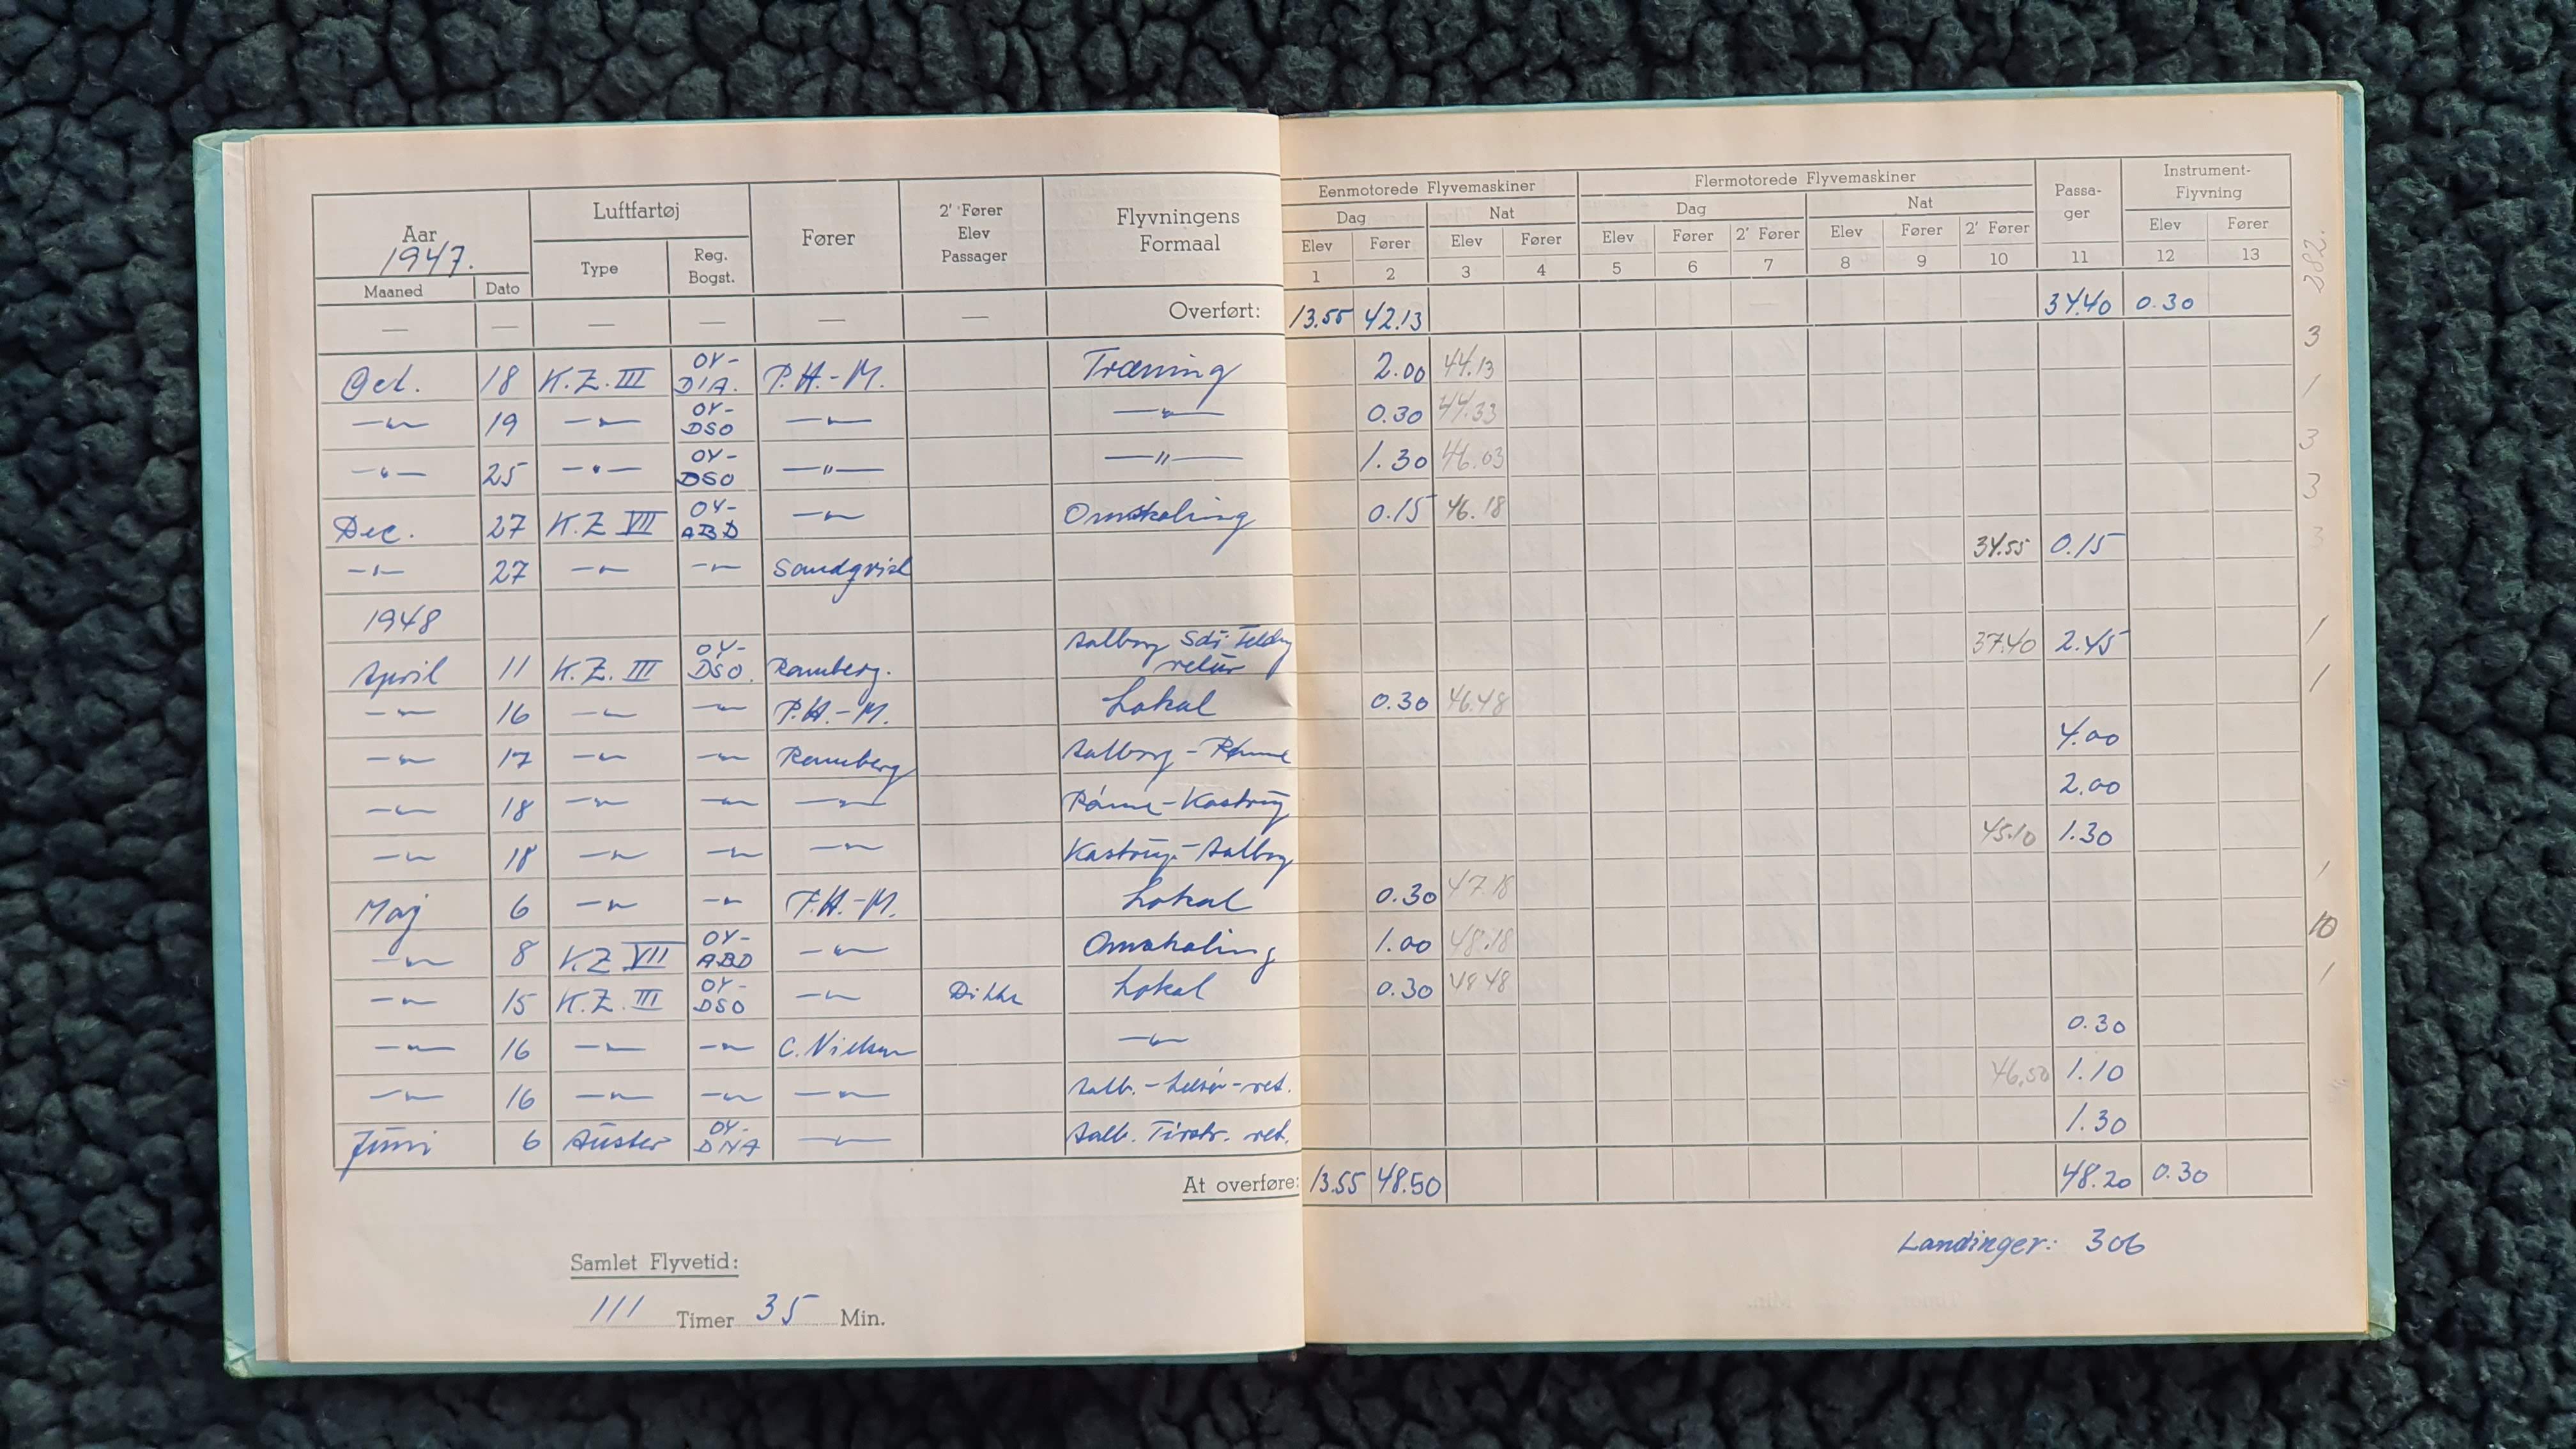 Aar 1947. Luftfartøj Fører 2' Fører Elev Passager Flyvningens Formaal Eenmotorede Flyvemaskiner Flermotorede Flyvemaskiner Passa-ger Instrument-Flyvning
Dag Nat Dag Nat
Maaned Dato Type Reg. Bogst. Elev Fører Elev Fører Elev Fører 2' Fører Elev Fører 2' Fører Elev Fører
1 2 3 4 5 6 7 8 9 10 11 12 13 282.
— — — — — — Overført: 13.55 42.13 37.40 0.30
Oct. 18 K.Z. III OY-DIA. P.H.-M. Træning 2.00 44.13 3
—"— 19 —"— OY-DSO —"— —"— 0.30 44.33 1
—"— 25 —"— OY-DSO —"— —"— 1.30 46.03 3
Dec. 27 K.Z VII OY-ABD —"— Omskoling 0.15 46.18 3
—"— 27 —"— —"— Sandqvist 37.55 0.15 3
1948
April 11 K.Z. III OY-DSO. Ramberg. Aalborg Sdr: Felding retur 37.40 2.45 1
—"— 16 —"— —"— P.H.-M. Lokal 0.30 46.48 1
—"— 17 —"— —"— Ramberg Aalborg - Rønne 4.00
—"— 18 —"— —"— —"— Rønne - Kastrup 2.00
—"— 18 —"— —"— —"— Kastrup - Aalborg 45.10 1.30
Maj 6 —"— —"— P.H.-M. Lokal 0.30 47.18 1
—"— 8 K.Z VII OY-ABD —"— Omskoling 1.00 48.18 10
—"— 15 K.Z. III OY-DSO —"— Lokal 0.30 48 48 1
—"— 16 —"— —"— C. Nielsen —"— 0.30
—"— 16 —"— —"— —"— Aalb. - Læsø - ret. 46.50 1.10
Juni 6 Auster OY-DNA —"— Aalb. Tirstr. ret. 1.30
At overføre: 13.55 48.50 48.20 0.30
Landinger: 306
Samlet Flyvetid:
111 Timer 35 Min.